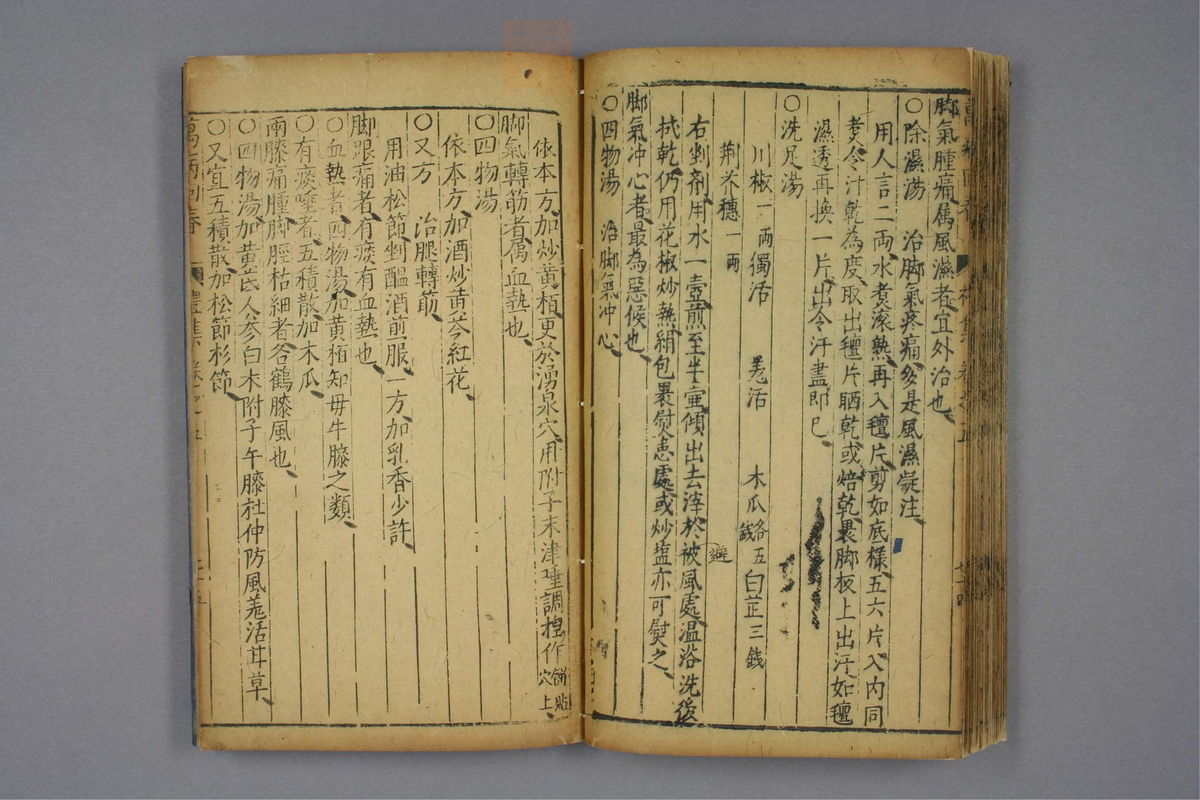 脚氣腫痛属風濕者宜外治也
○除濕湯　治脚氣疼痛多是風濕凝注
用人言二兩水煑滾熱再入氊片剪如底樣五六片入内同
煑令汁乾為度取出氊片晒乾或焙乾褁脚板上出汗如氊
濕透再換一片出令汗盡即已
○洗足湯
川椒一兩獨活　羗活　木瓜各五錢白芷三錢
荆芥穗一兩
右剉剤用水一壺煎至半壷傾出去滓於被風處温浴洗後
避
拭乾仍用花椒炒熱絹包褁熨患處或炒塩亦可熨之
脚氣冲心者最為惡候也
○四物湯　治脚氣冲心
依本方加炒黄栢更於湧泉穴用附子末津唾調揑作餅貼穴上
脚氣轉筋者属血熱也
○四物湯
依本方加酒炒黄芩紅花
○又方　治腿轉筋
用油松節剉醞酒煎服一方加乳香少許
脚跟痛者有痰有血熱也
○血熱者四物湯加黄栢知毋牛膝之類
○有痰唾者五積散加木瓜
兩膝痛腫脚脛枯細者名鶴膝風也
○四物湯加黄芪人参白朮附子午膝杜仲防風羗活甘草
○又宜五積散加松節杉節